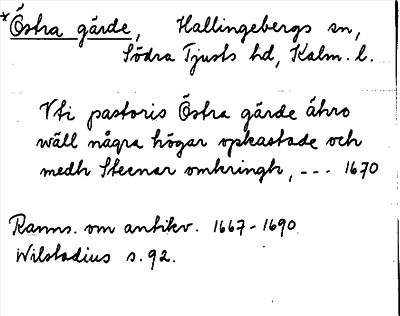 *Östra gärde, Hallingebergs sn,
Södra Tjusts hd, Kalm. l.
Vti pastoris Östra gärde ähro
wäll några högar opkastade och
medh Steenar omkringh, --- 1670
Ranns. om antikv. 1667-1690.
Wilstadius s. 92.